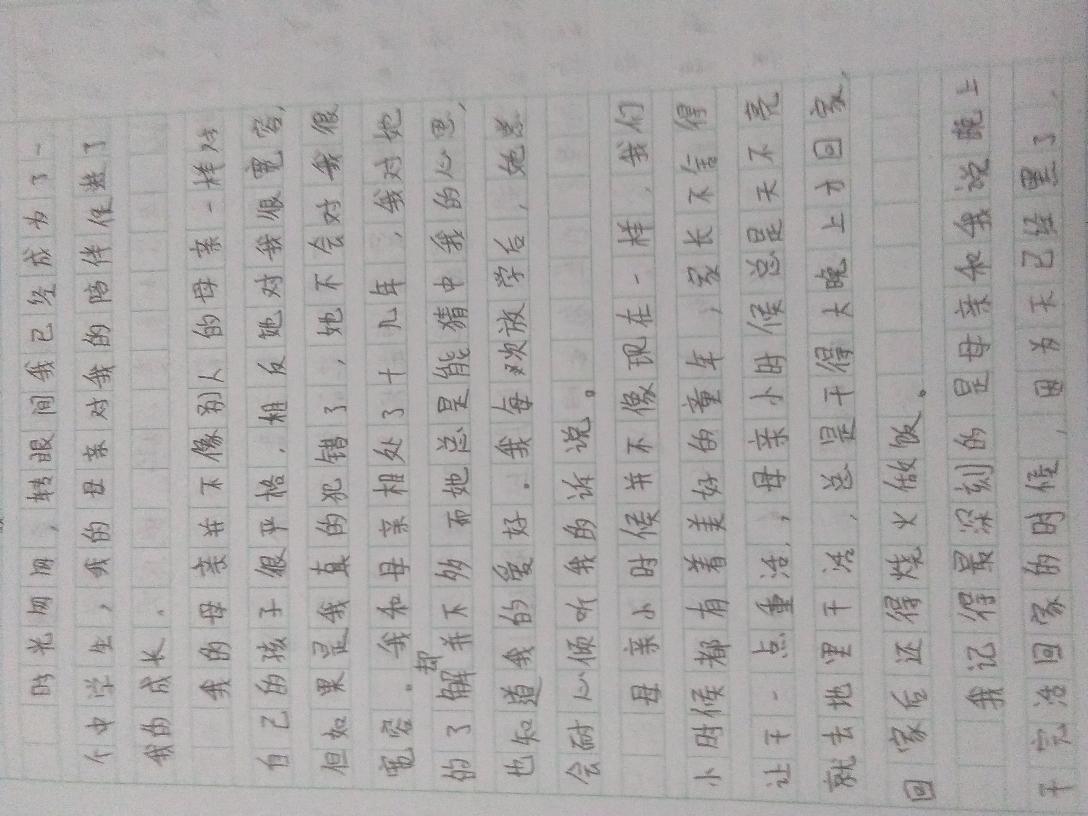 时光匆匆，转眼间我已经成为了一
个中学生，我的母亲对我的陪伴伴
我的成长。
我的母亲并不像别人的母亲一样对
自己的孩子很严格，相反她对我很宽容，
但如果是我真的犯错了，她不会对我很
宽容。我和母亲相处了十九年，我对她
的了解却并不多而她总是能猜中我的心思，
也知道我的爱好。我每次放学后，她总
会耐心倾听我的诉说。
母亲小时候并不像现在一样，我们
小时候都有着美好的童年，家长不舍得
让干一点重活，母亲小时候总是天不亮
就去地里干活，总是干得大晚上才回家，
回家后还得烧火做饭。
我记得最深刻的是母亲和我说晚上
干完活回家的时候，因为天已经黑了，